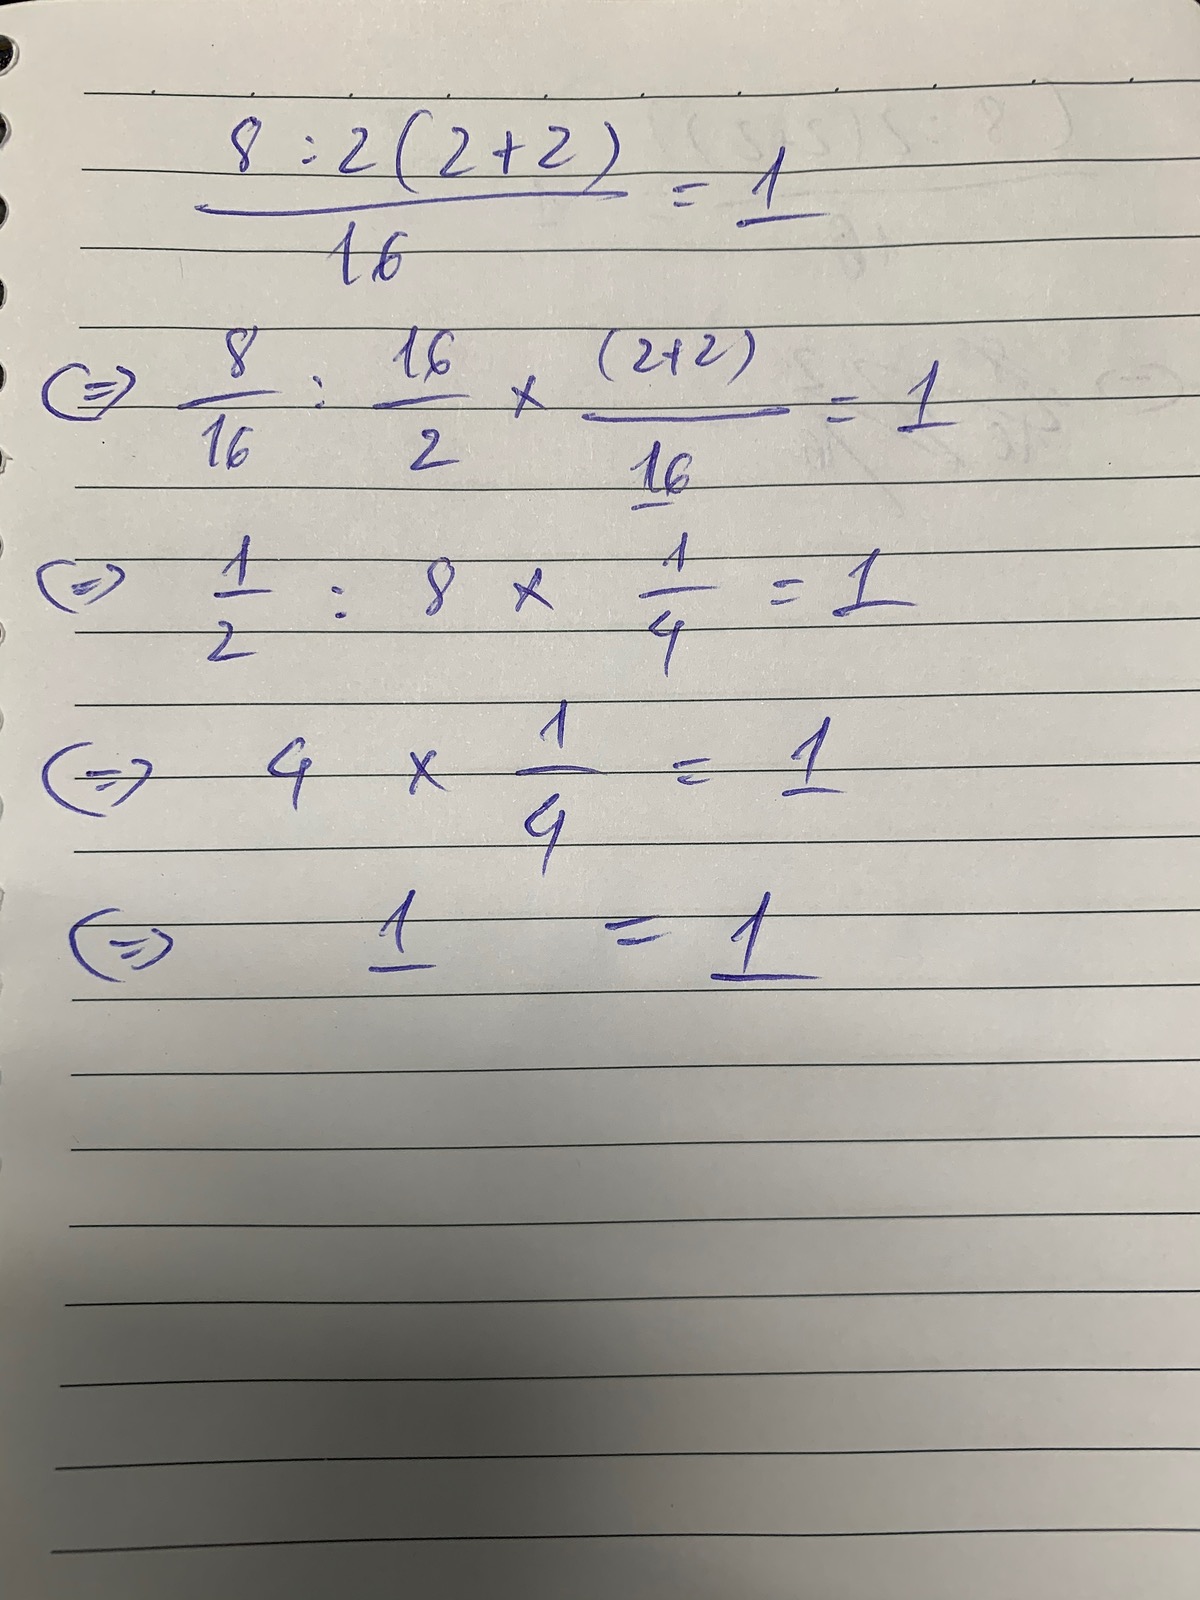 8 : 2 (2+2)
16
= 1
(=) 8/16 : 16/2 × (2+2)/16 = 1
(=) 1/2 : 8 × 1/4 = 1
(=) 4 × 1/4 = 1
(=) 1 = 1